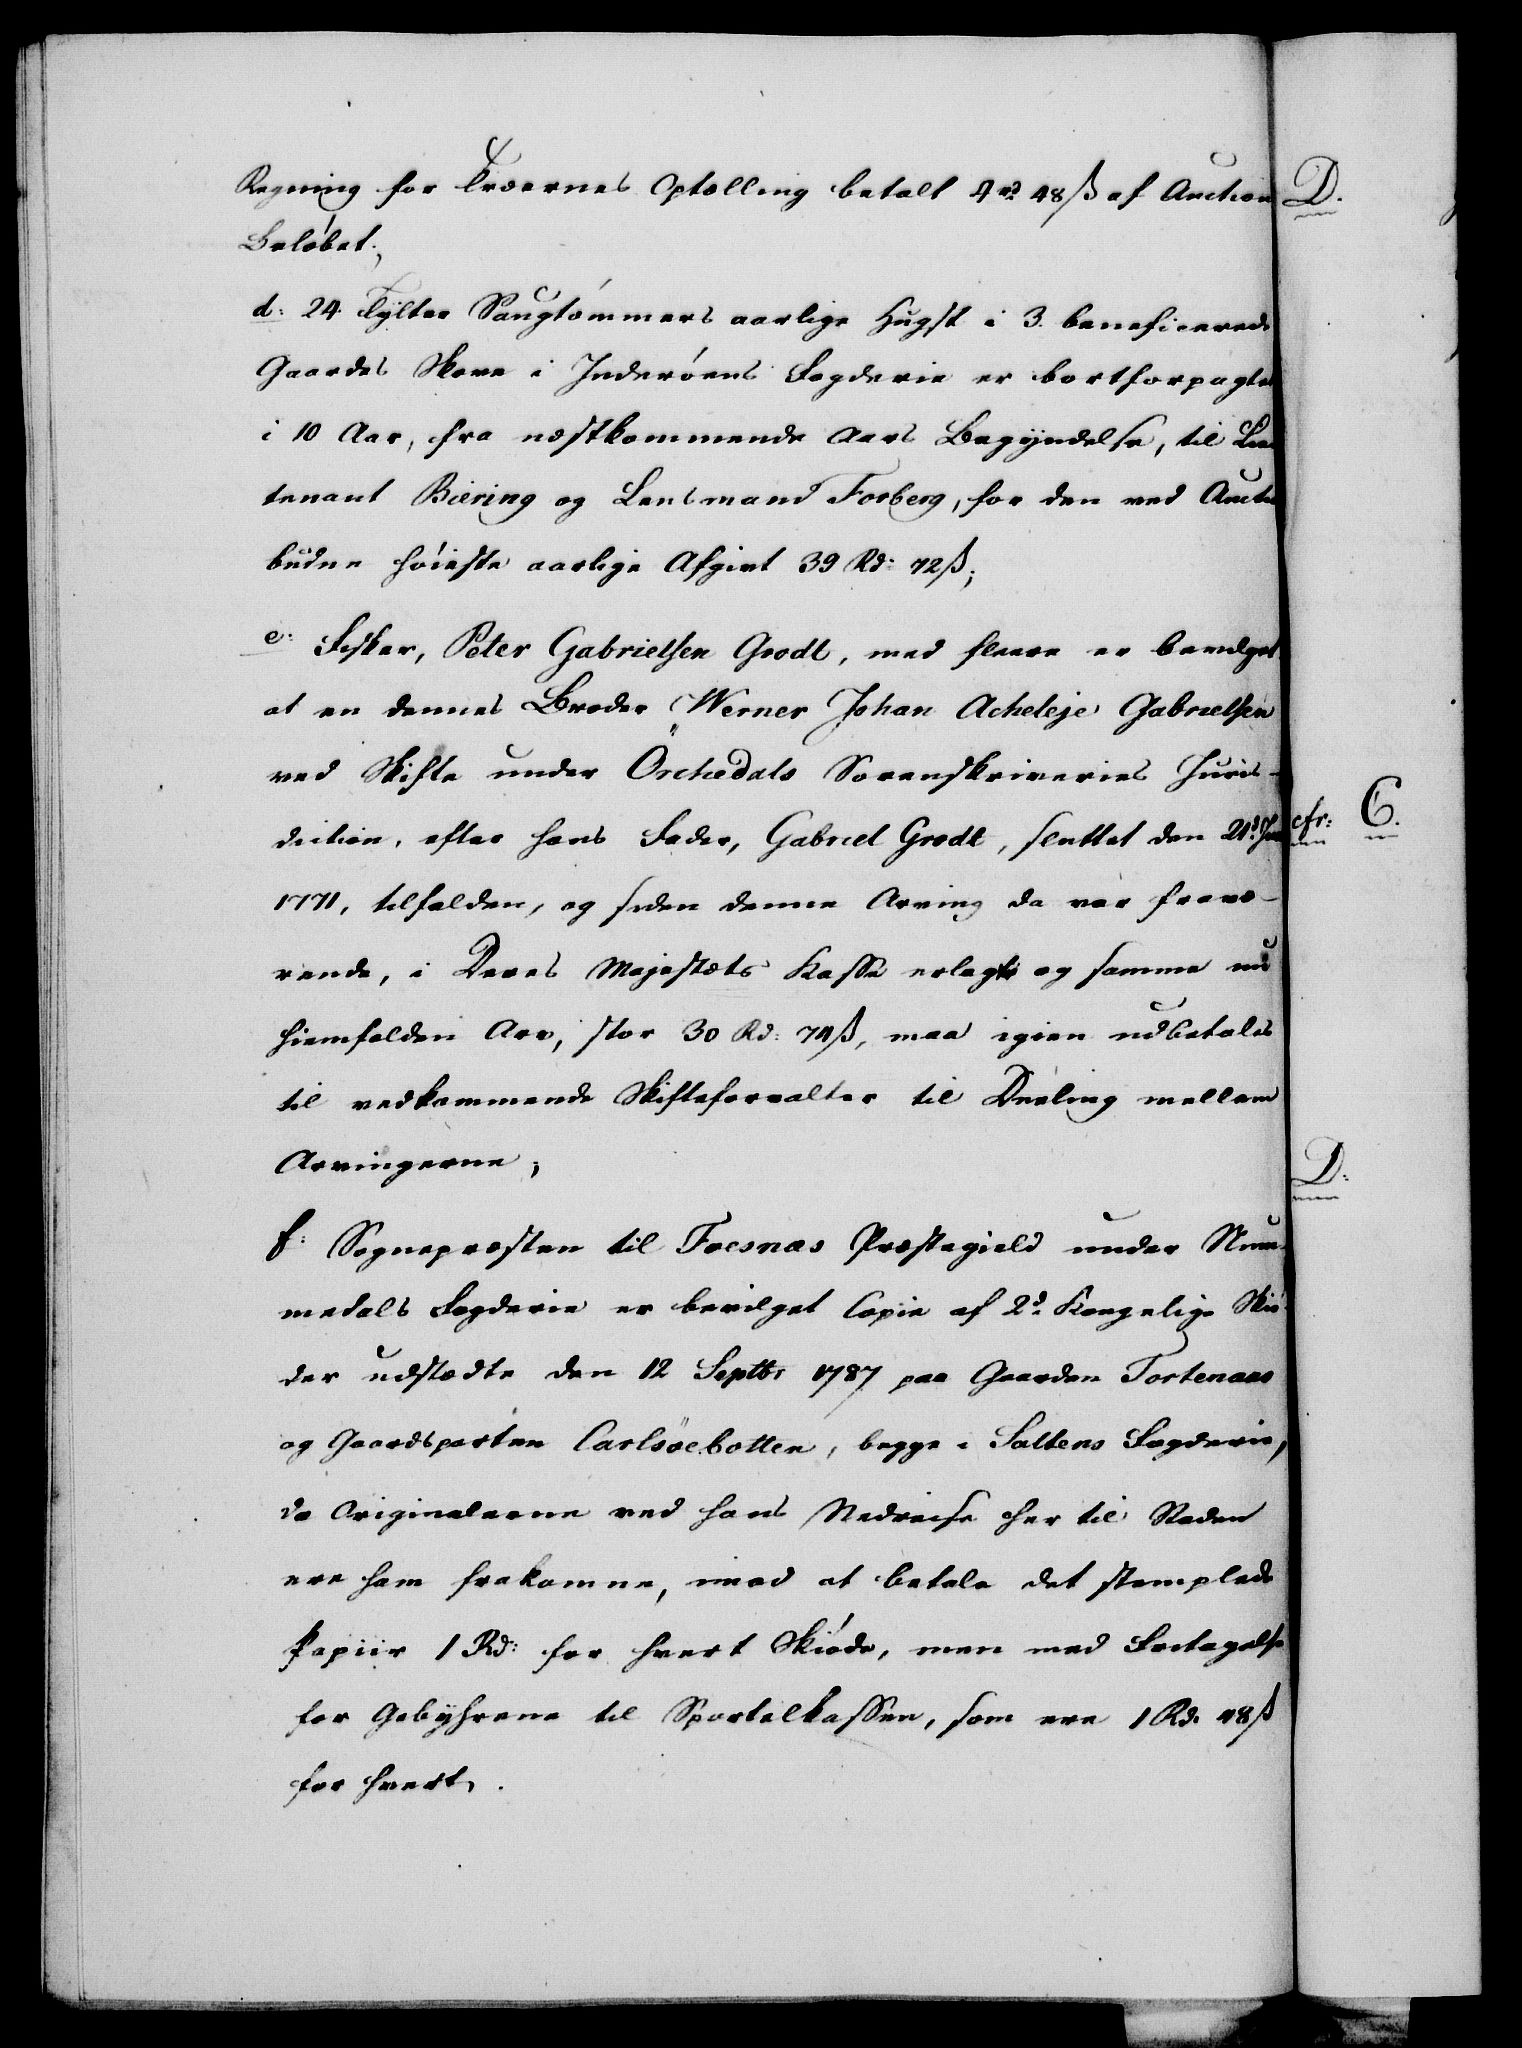 Regning for Træernes Optælling betalt 4 rd 48 ß af Auction
Beløbet;
d: 24 Tylter Saugtømmers aarlige Hugst i 3. beneficerede
Gaardes Skove i Inderøens Fogderie er bortforpagtet
i 10 Aar, fra næstkommende Aars Begyndelse, til Lieu
tenant Biering og Lensmand Forberg, for den ved Auction
budne høieste aarlige Afgivt 39 Rd: 72 ß;
e: Fisker, Peter Gabrielsen Grodt, med fleere er bevilget
at en dennes Broder Werner Johan Acheleje Gabrielsen
ved Skifte under Örchedals Sorenskriveries Juris-
diction, efter hans Fader, Gabriel Grodt, sluttet den 21d
1771, tilfalden, og siden denne Arving da var fravæ-
rende, i Deres Majestæts Kasse erlagte og samme nu
hiemfalden Arv, stor 30 Rd: 74 ß, maa igien udbetales
til vedkommende Skifteforvalter til Deeling mellem
Arvingerne;
f: Sognepræsten til Foesnæs Præstegield under Num-
medals Fogderie er bevilget Copie af 2de Kongelige Skiø
der udstædte den 12 Septbr 1787 paa Gaarden Tortenaas
og Gaardsparten Carlsöebotten, begge i Saltens Fogderie,
da Originalerne ved hans Nedreise her til Staden
ere ham frakomne, imod at betale det stemplede
Papiir 1 Rd: for hvert Skiøde, men med Fritagelse
for Gebyhrene til Sportelkassen, som ere 1 Rd. 48 ß
for hvert.
D.
cfr: C.
D: